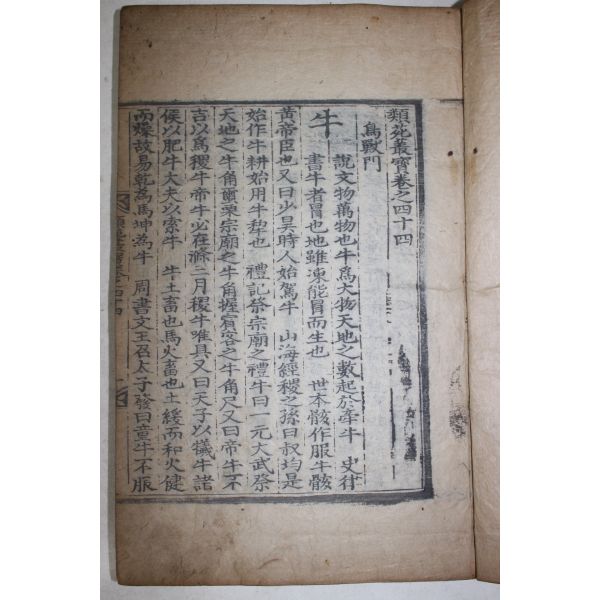 類苑叢寶卷之四十四
鳥獸門
牛 說文物萬物也牛爲大物天地之數起於牽牛 史律
書牛者冒也地雖凍能冒而生也 世本骸作服牛骸
黃帝臣也又曰少昊時人始駕牛 山海經稷之孫曰叔均是
始作牛耕始用牛犂也 禮記祭宗廟之禮牛曰一元大武祭
天地之牛角繭栗宗廟之牛角握賓客之牛角尺又曰帝牛不
吉以爲稷牛帝牛必在滌三月稷牛唯具又曰天子以犧牛諸
侯以肥牛大夫以索牛 牛土畜也馬火畜也土緩而和火健
而燥故易乾為馬坤為牛 周書文王召太子發曰童牛不服
類苑叢寶卷之四十四